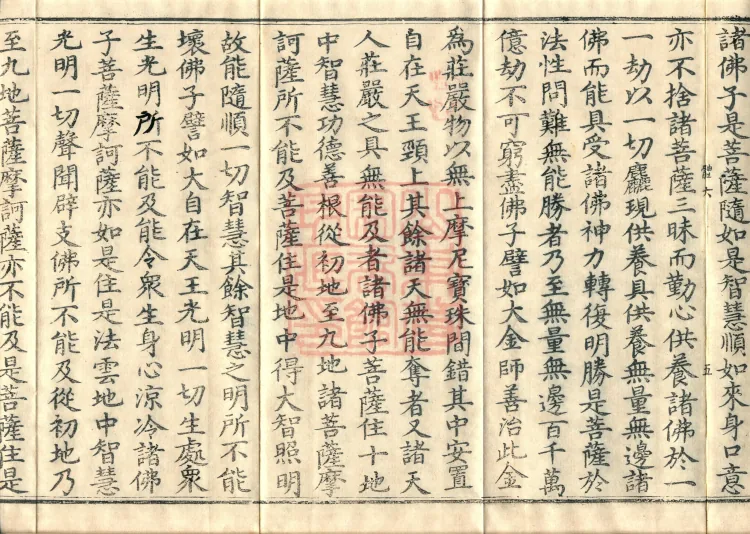 諸佛子是菩薩隨如是智慧順如來身口意
亦不捨諸菩薩三昧而勤心供養諸佛於一
一劫以一切麤現供養具供養無量無邊諸
佛而能具受諸佛神力轉復明勝是菩薩於
法性問難無能勝者乃至無量無邊百千萬
億劫不可窮盡佛子譬如大金師善治此金
為莊嚴物以無上摩尼寶珠間錯其中安置
自在天王頸上其餘諸天無能奪者又諸天
人莊嚴之具無能及者諸佛子菩薩住十地
中智慧功德善根從初地至九地諸菩薩摩
訶薩所不能及菩薩住是地中得大智照明
故能隨順一切智慧其餘智慧之明所不能
壞佛子譬如大自在天王光明一切生處衆
生光明所不能及能令衆生身心涼冷諸佛
子菩薩摩訶薩亦如是住是法雲地中智慧
光明一切聲聞辟支佛所不能及從初地乃
至九地菩薩摩訶薩亦不能及是菩薩住是
六
五